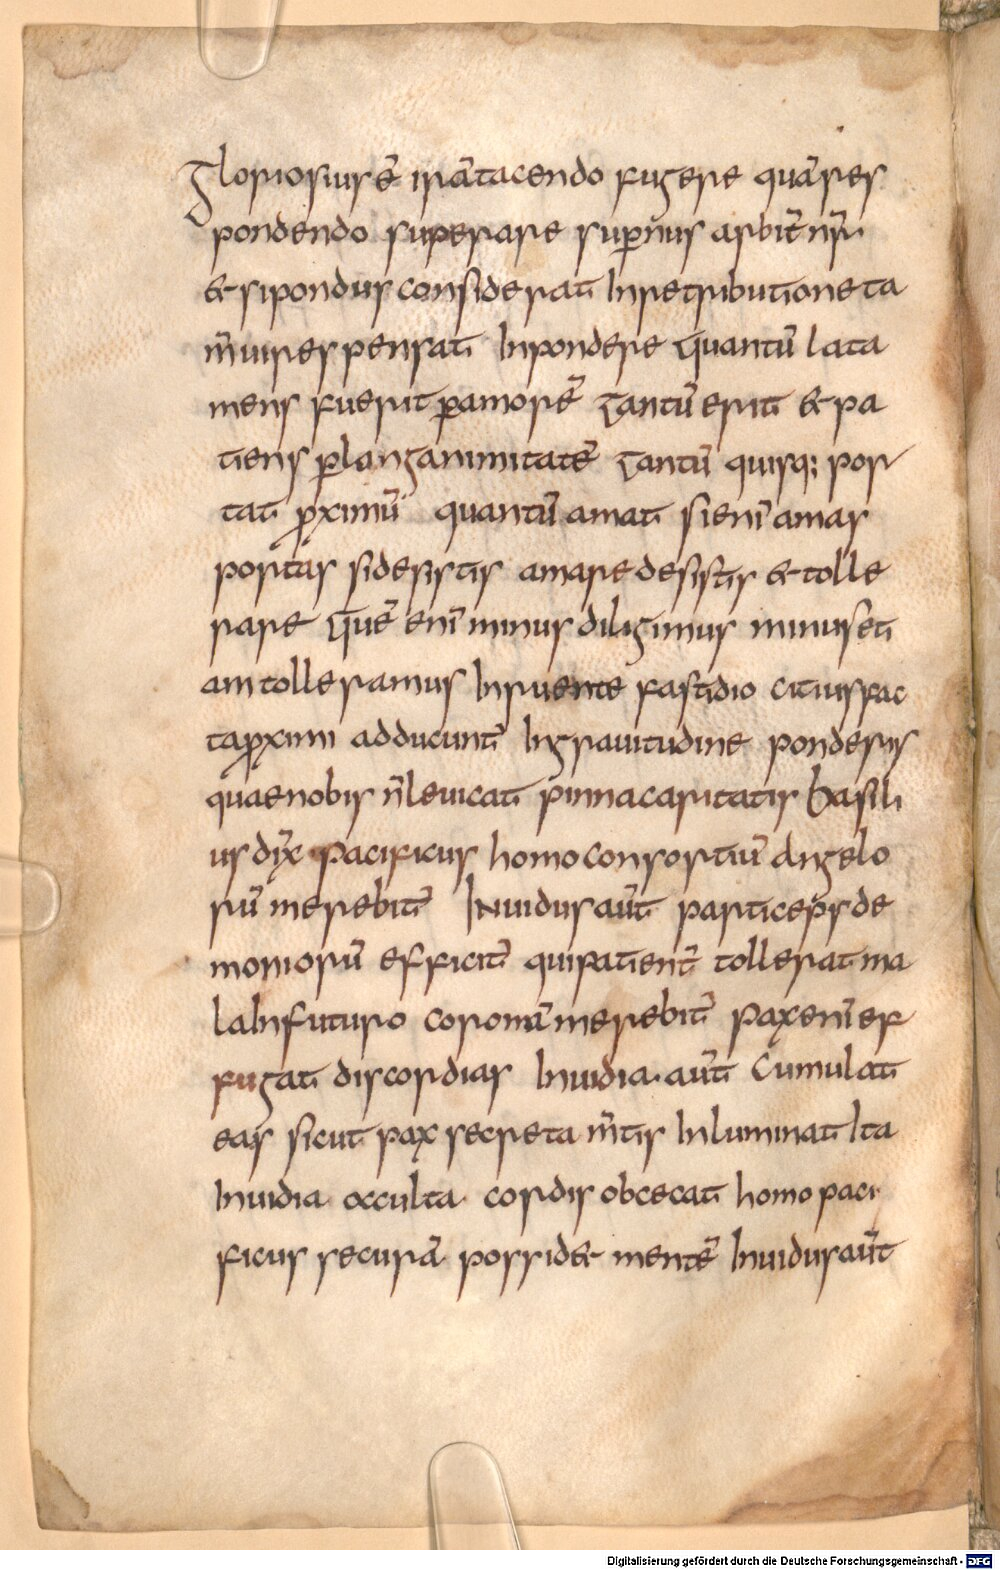 Gloriosius ē irā tacendo fugere quā res
pondendo superare sup̄nus arbit̄ nr̄
& si pondus considerat In retributione ta
m̄ uires pensat In pondere Quantū lata
mens fuerit p amorē Tantū erit & pa
tiens p langanimitatē Tantū quisq; por
tat p̄ximū quantū amat si enī amas
portas si desistis amare desistis & tolle
rare Quē enī minus diligimus minus eti
am tolleramus Inruente fastidio citius fac
ta p̄ximi adducunt̄ In grauitudine ponderis
quae nobis n̄ leuicat pinna caritatis Basili
us dix̄ Pacificus homo consortiū Angelo
rū merebit̄ Inuidus aūt particeps de
moniorū efficit̄ qui patient̄ tollerat ma
la In futuro coronā merebit̄ Pax enī ef
fugat discordias Inuidia aūt Cumulat
eas sicut pax secreta m̄tis Inluminat Ita
Inuidia occulta cordis obcecat homo paci
ficus securā possid& mentē Inuidus aūt
Digitalisierung gefördert durch die Deutsche Forschungsgemeinschaft - DFG